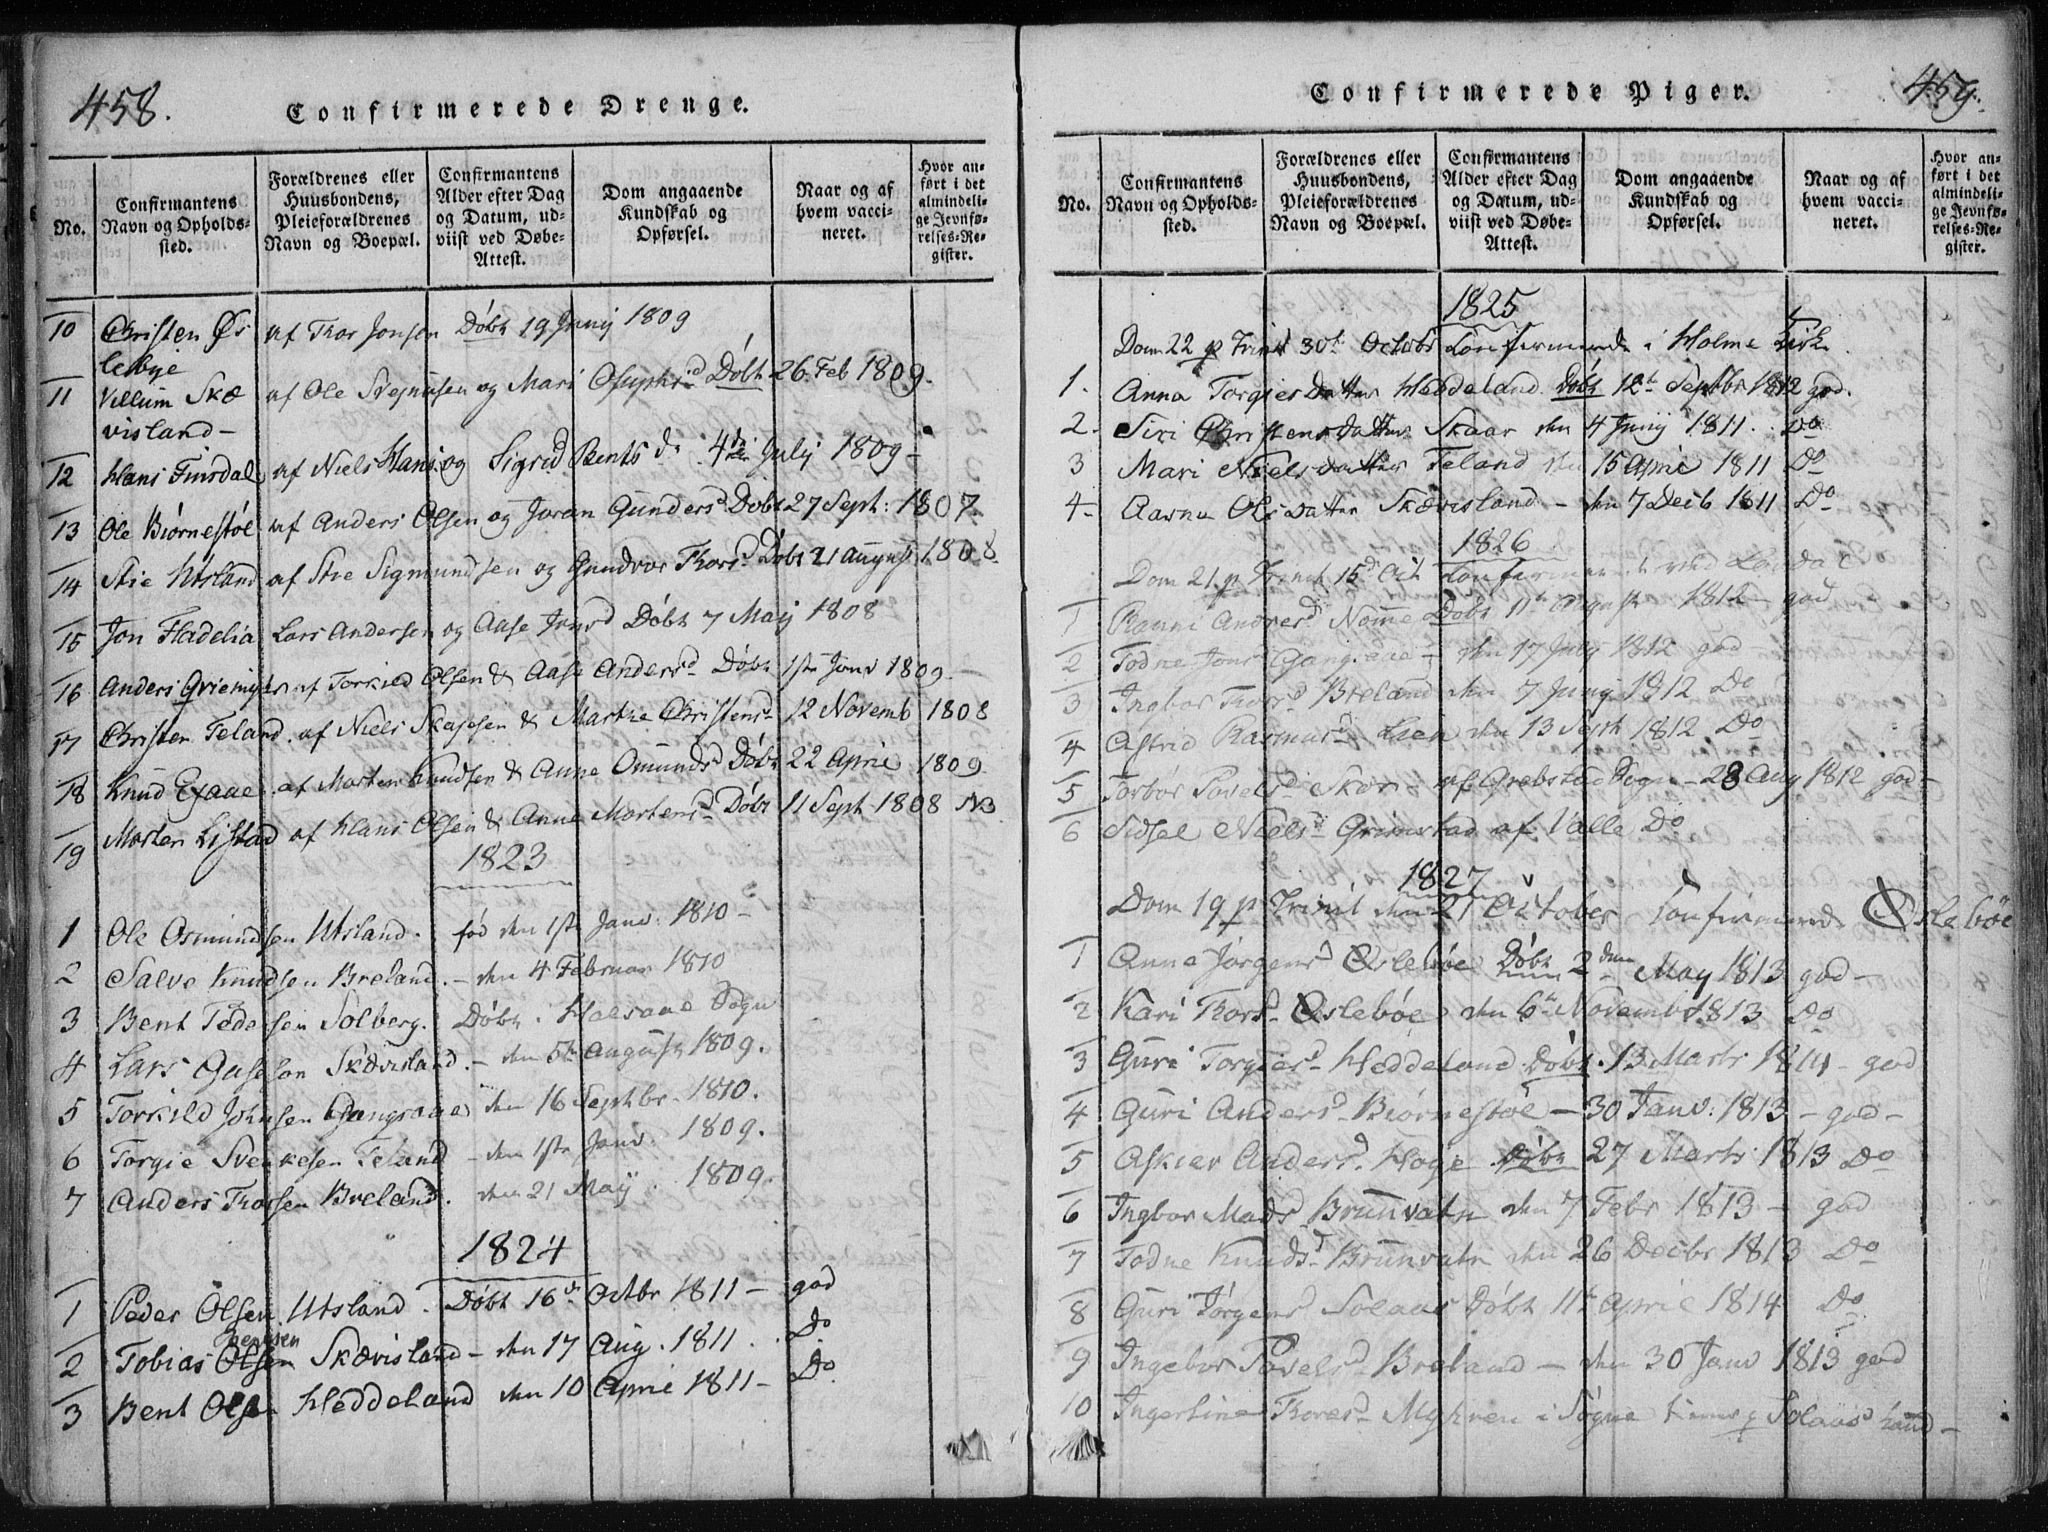 458.
Confirmerede Drenge.
No.
Confirmantens Navn og Opholds-sted.
Forældrenes eller Huusbondens, Pleieforældrenes Navn og Boepæl.
Confirmantens Alder efter Dag og Datum, ud-viist ved Døbe-Attest.
Dom angaaende Kundskab og Opførsel.
Naar og af hvem vacci-neret.
Hvor an-ført i det almindeli-ge Jevnfø-relses-Re-gister.
10 Christen Øs af Thor Jonsen Døbt 19 Junij 1809
lebøe
11 Villum Skæ af Ole Svejnusen og Mari Osuphsd Døbt 26 Feb 1809.
visland –
12 Hans Finsdal af Niels Hans. og Sigrid Bents d. 4de July 1809 –
13 Ole Biørnestøl af Anders Olsen og Joran Gundersd Døbt 27 Sept: 1807.
14 Stie Utsland af Stie Sigmundsen og Gundvor Thorsd Døbt 21 August 1808
15 Jon Fladelia Lars Andersen og Aase Jensd Døbt 7 Maij 1808
16 Anders Qviemyhr af Torkild Olsen & Aase Andersd Døbt 1ste Janv 1809. –
17 Christen Teland af Niels Skaiesen & Marthe Christensd 12 Novemb 1808
18 Knud Exaae af Morten Knudsen & Anne Omundsd Døbt 22 April 1809
19 Morten Listad af Hans Olsen & Anne Mortensd Døbt 11 Sept 1808 NB
1823
1 Ole Osmundsen Utsland. fød den 1ste Janv. 1810 –
2 Salve Knudsen Breland. – den 4 Februar 1810
3 Bent Pedersen Solberg. Døbt. Halsaae Sogn
4 Lars Aasesøn Skævisland. – den 5te August 1809.
5 Torkild Johnsen Gangsaae den 16 Septbr. 1810.
6 Torgie Svenkesen Teland – den 1ste Janv. 1809.
7 Anders Thorsen Breland. den 21 Maij. 1809.
1824
1 Peder Olsen Utsland. Døbt 16de Octbr 1811 – god
2 Tobias Olsen Skævisland – den 17 Aug. 1811. Do
3 Bent Olsen Heddeland den 10 April 1811 – Do
459.
Confirmerede Piger.
No.
Confirmantens Navn og Opholds-sted.
Forældrenes eller Huusbondens, Pleieforældrenes Navn og Boepæl.
Confirmantens Alder efter Dag og Datum, ud-viist ved Døbe-Attest.
Dom angaaende Kundskab og Opførsel.
Naar og af hvem vacci-neret.
Hvor an-ført i det almindeli-ge Jevnfø-relses-Re-gister.
1825
Dom 22 p Trinit 30te Octobr Confirmerede i Holme Kirke
1. Anna Torgiers Datter Heddeland. Døbt 12te Septbr 1812 god.
2. Siri Christens datter Skaar den 4 Junij 1811. Do
3 Mari Niels datter Teland den 15 April 1811 Do
4. Aasne Ols Datter Skævisland – den 7 Decb 1811 Do
1826
Dom 21 p Trinit 15d Oct Confirmerede ved
1 Ranni Andersd Nome Døbt 11te August 1812 – god
2 Todne Jonsd Gangsaae – den 17 July 1812 god
3 Ingbor Thorsd Breland den 7 Junij 1812 Do
4 Astrid Rasmusd Lien den 13 Sept 1812. Do
5 Torbor Povelsd Skor – af Grebstad Sogn – 28 Aug 1812 god –
6 Sidsel Nielsd Grimstad af Valle Do
1827
Dom 19 p Trinit den 21 October Confirmerede Øslebøe
1 Anne Jørgensd Øslebøe Døbt 2den May 1813 god –
2 Kari Thorsd Øslebøe den 6te Novembr 1813 Do
3 Guri Torgiersd Heddeland Døbt. 13 Marts 1814 – god
4 Guri Andersd Biørnestøl – 30 Janv: 1813 – god –
5 Askier Andersd Høye Døbt 27 Marts 1813 Do
6 Ingbor Madsd Brunvatn den 7 Febr 1813 – god
7 Todne Knudsd Brunvatn den 26 Decbr 1813 Do
8 Guri Jørgensd Solaas Døbt 11te April 1814 Do
9 Ingebor Povelsd Breland – den 30 Janv 1813 god
10 Ingerline Thoresd Myhren i Søgne Solaas